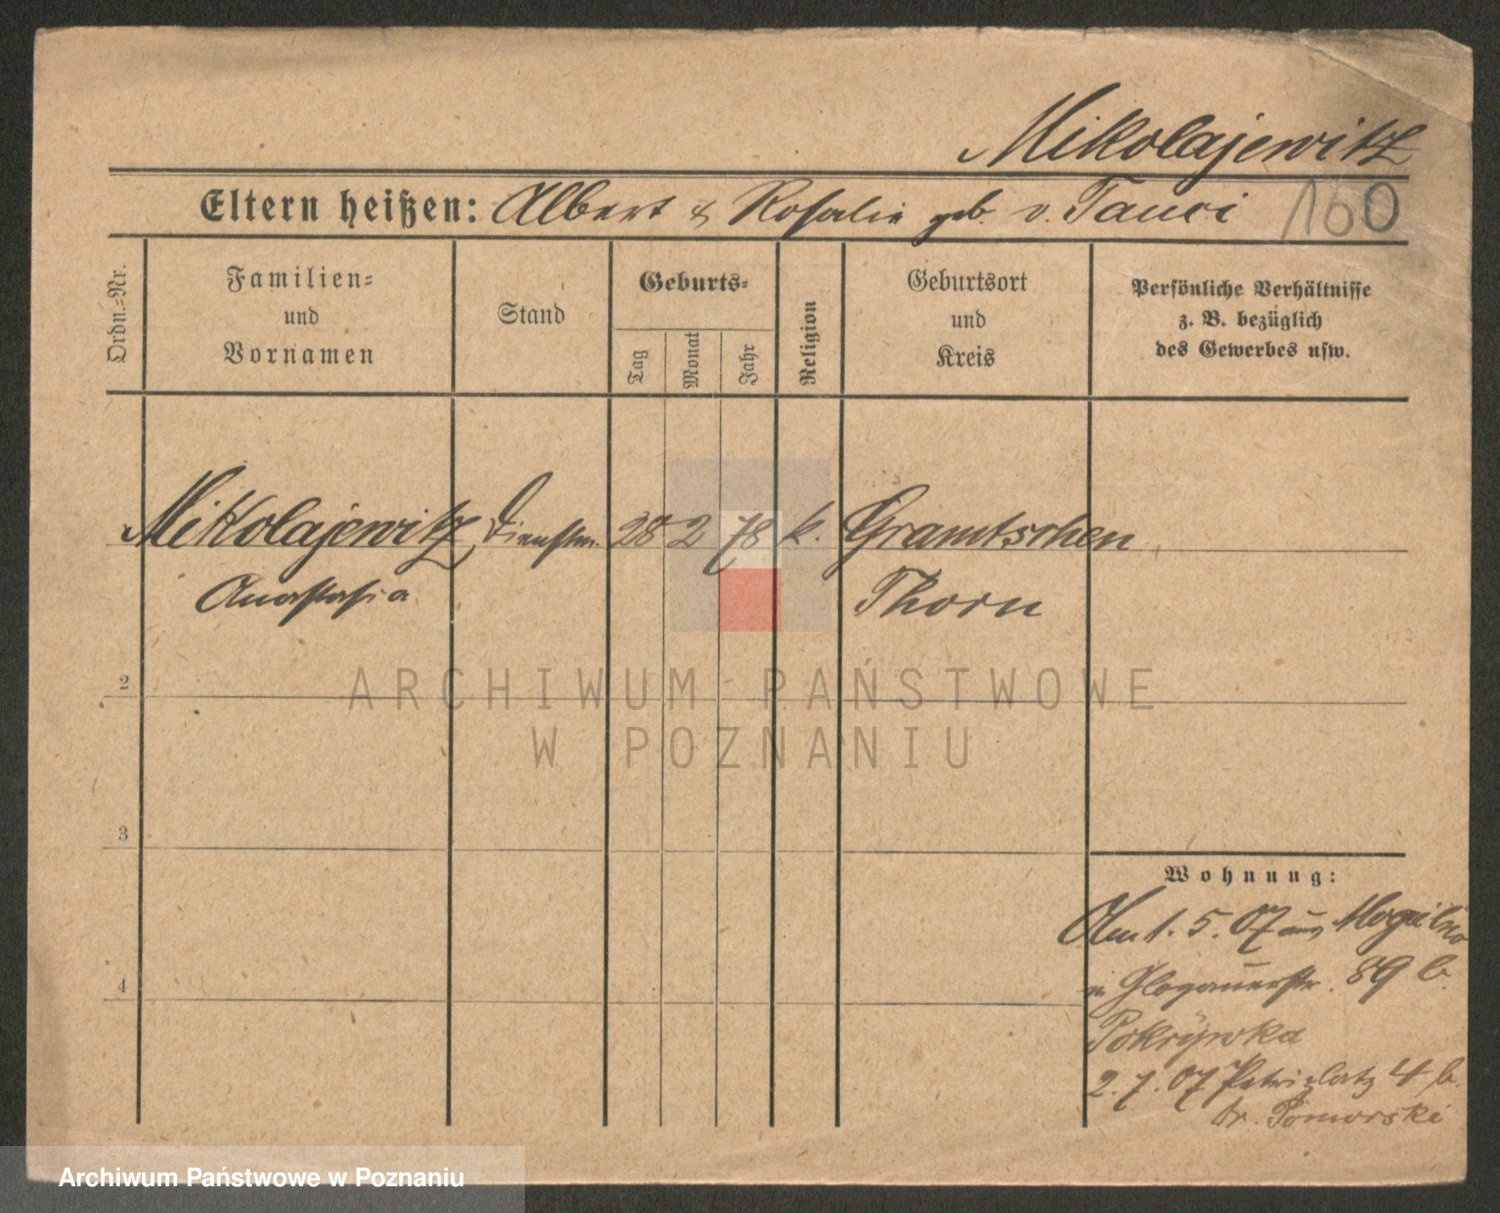 Mikolajewitz
Eltern heißen: Albert & Rosalie geb. v. Tauci
160
Ordn.-Nr.
Familien-
und
Vornamen
Stand
Geburts-
Tag
Monat
Jahr
Religion
Geburtsort
und
Kreis
Persönliche Verhältnisse
z. B. bezüglich
des Gewerbes usw.
Mikolajewitz Dienstm. 28 2 78 k. Gramtschen
Anastasia Thorn
2
ARCHIWUM PAŃSTWOWE
W POZNANIU
3
4
Wohnung:
Am 1. 5. 07 aus Mogilno
n Glogauerstr. 89 b.
Pokrywka
2. 7. 07 Petriplatz 4 b.
Dr. Pomorski
Archiwum Państwowe w Poznaniu